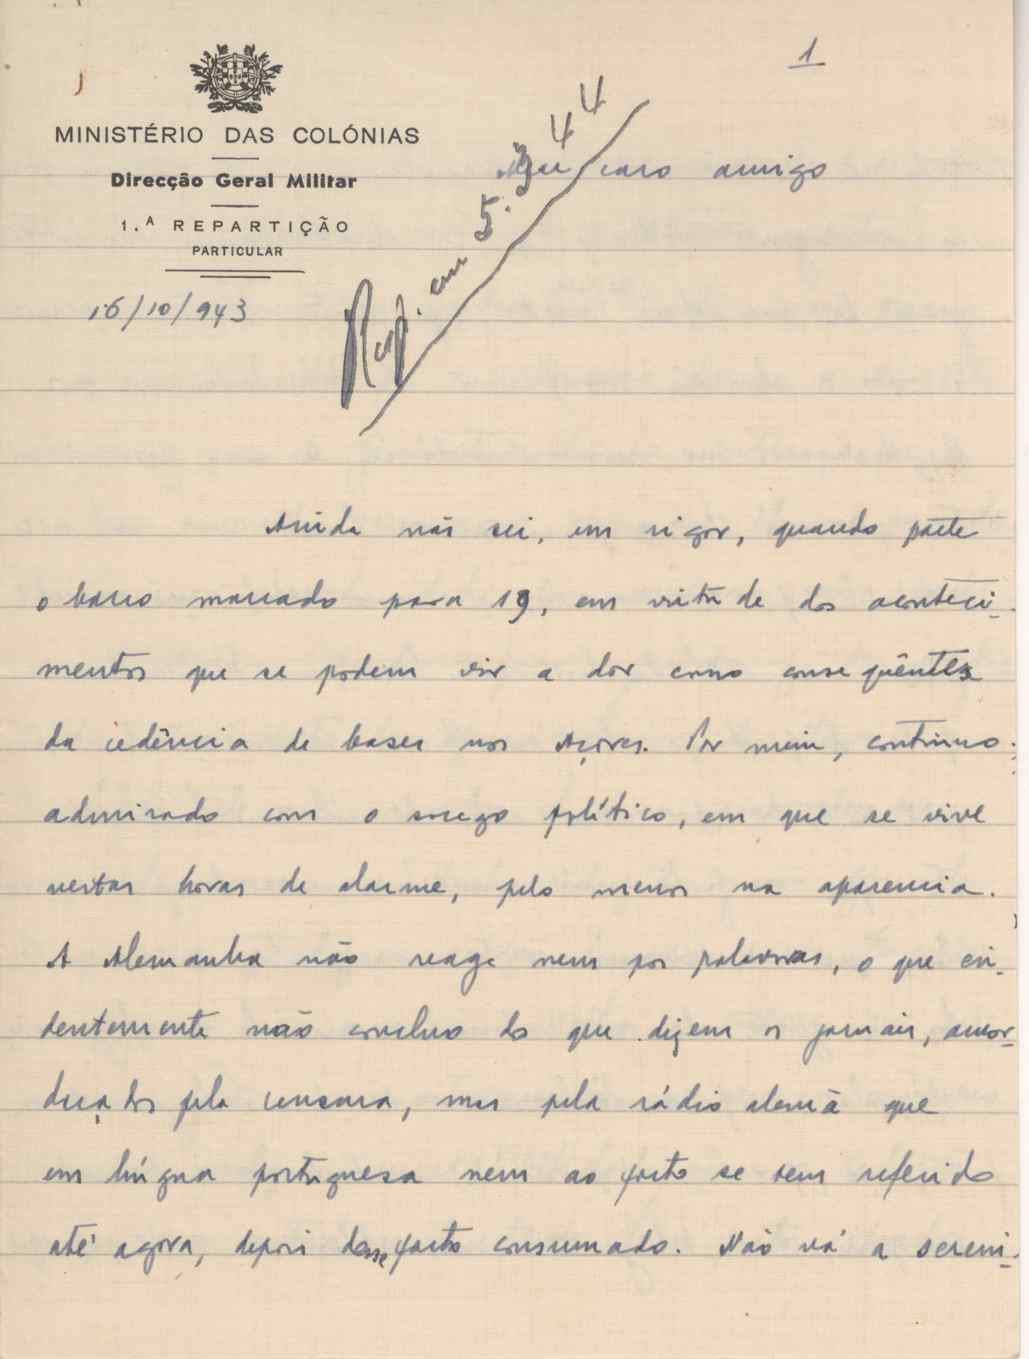 1
MINISTÉRIO DAS COLÓNIAS
Direcção Geral Militar
1.ª REPARTIÇÃO
PARTICULAR
16/10/943
Resp. em 5.3.44
Meu caro amigo
Ainda não sei, em rigor, quando parte
o barco marcado para 19, em virtude dos aconteci-
mentos que se podem vir a dar como conseqüentes
da cedência de bases nos Açores. Por mim, continuo
admirado com o socego político, em que se vive
nestas horas de alarme, pelo menos na aparencia.
A Alemanha não reage nem por palavras, o que evi-
dentemente não concluo do que dizem os jornais, amor-
daçados pela censura, mas pela rádio alemã que
em língua portuguesa nem ao facto se tem referido
até agora, depois desse facto consumado. Não vá a sereni-